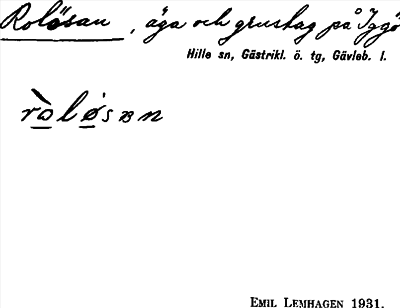 Rolösan, äga och grustag på Iggö
Hille sn, Gästrikl. ö. tg, Gävleb. l.
ròløsan
EMIL LEMHAGEN 1931.